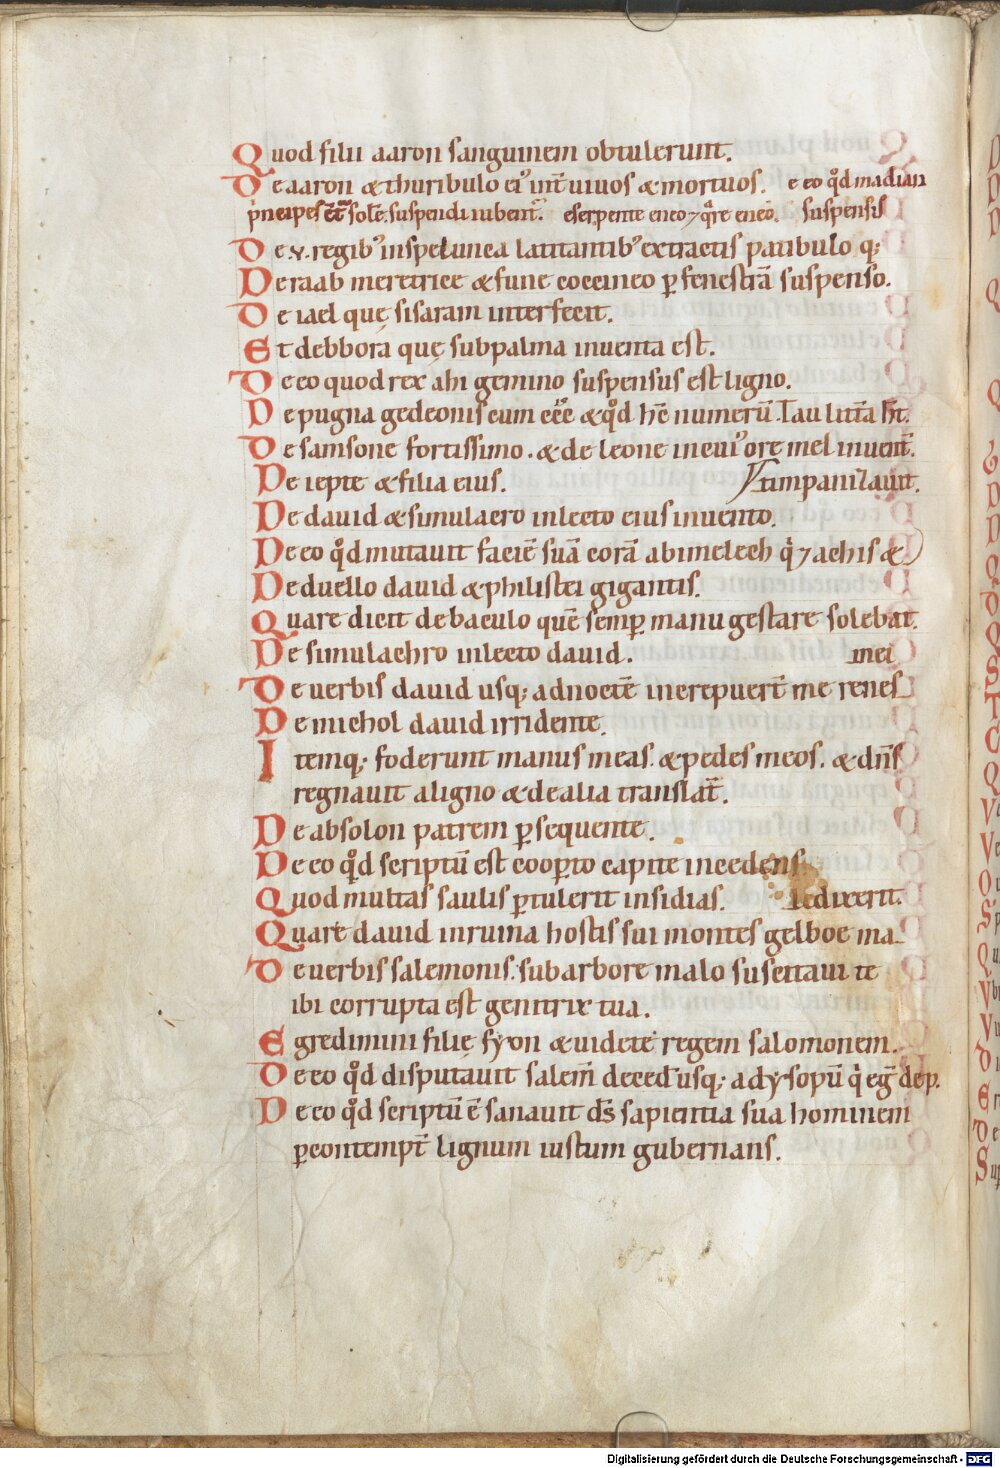 Quod filii aaron sanguinem obtulerunt.
De aaron & thuribulo ei᾽ int̄ uiuos & mortuos. e eo qd̊ madian
pncipes cū sole suspendi iubent. e serpente eneo ⁊ qͣre eneo. suspensis
De .v. regib᾽ in spelunca latitantib᾽ extractis patibulo q;
De raab meretrice & fune coccineo p̱ fenestrā suspenso.
De iael quę sisaram interfecit.
Et debbora quę sub palma inuenta est.
De eo quod rex ahi gemino suspensus est ligno.
De pugna gedeonis cum & qd̊ hc̄ numerū Tau littā ht̄.
De samsone fortissimo. & de leone in cui᾽ ore mel inuenit̄.
De iepte & filia eius. timpanizauit.
De dauid & simulacro in lecto eius inuento.
De eo qd̊ mutauit faciē suā corā abimelech q ⁊ achis &
De duello dauid & philistei gigantis.
Quare dicit de baculo quē semp̱ manu gestare solebat.
De simulachro in lecto dauid. mei
De uerbis dauid usq; ad noctē increpuerт̄ me renes
De michol dauid irridente.
Itemq; foderunt manus meas. & pedes meos. & dn̄s
regnauit a ligno & de alia translat̄.
De absolon patrem p̱sequente.
De eo qd̊ scriptū est coop̱to capite incedens
Quod multas saulis p̱tulerit insidias. ledixerit.
Quare dauid in ruina hostis sui montes gelboe ma
De uerbis salemonis: sub arbore malo suscitaui te
ibi corrupta est genitrix tua.
Egredimini filię syon & uidete regem salomonem.
De eo qd̊ disputauit salem̄ de ced᾽ usq; ad ysopū q eg̃ de p.
De eo qd̊ scriptū ē sanauit ds̄ sapientia sua hominem
p̱ contempt̄ lignum iustum gubernans.
Digitalisierung gefördert durch die Deutsche Forschungsgemeinschaft - DFG